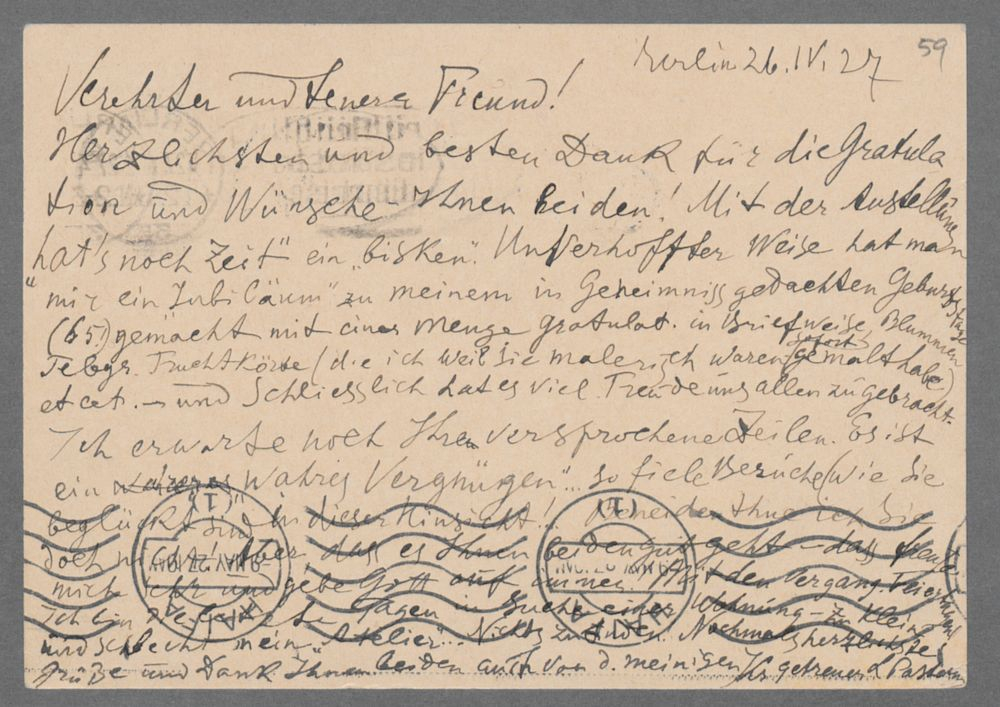 59
Berlin 26.IV.27
Verehrter und teurer Freund!
Herzlichsten und besten Dank für die Gratula
tion und Wünsche Ihnen beiden! Mit der Austellung
hat's noch Zeit" ein „bisken". Unverhoffter Weise hat man
"mir ein Jubiläum" zu meinem in Geheimniss gedachten Geburtstage
(65) gemacht mit einer Menge Gratulat. in Briefweise, Blummen
Telegr. Fruchtkörbe (die ich weil sie malerisch waren sofort gemalt habe)
etcet. – und Schliesslich hat es viel Freude uns allen zugebracht.
Ich erwarte noch Ihre versprochene Zeilen. Es ist
ein wahres Vergnügen"... so fiele Besuche (wie Sie
beglückt sind in dieser Hinsicht!.. Ihne ich Sie
doch aber das es Ihnen beiden gut geht – dass freut
mich sehr und gebe Gott auf immer. Mit den vergang. Feiertagen
Ich bin Tagen in Suche einer Wohnung – zu klein
und schlecht mein „Atelier"... Nichts zu finden. Nochmals herzlichste
Grüße und Dank Ihnen beiden auch von d. meinigen Ihr getreuer L Pasternak